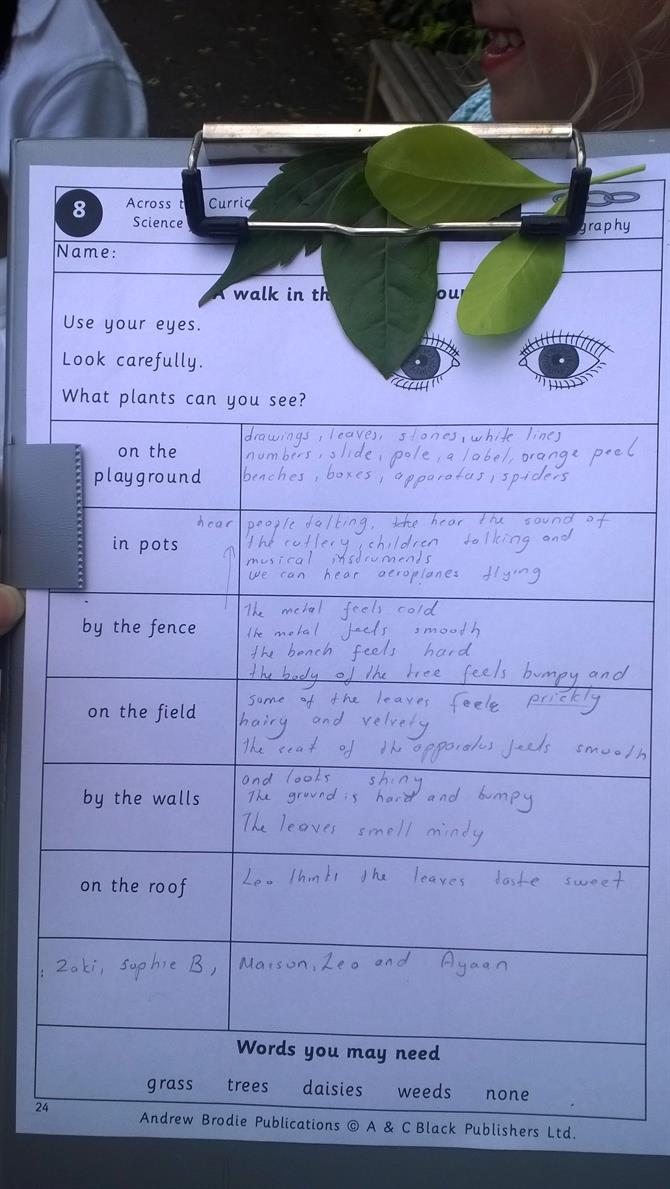 8
Across t Curric
Science
graphy
Name:
A walk in th our
Use your eyes.
Look carefully.
What plants can you see?
on the playground
drawings, leaves, stones, white lines
numbers, slide, pole, a label, orange peel
benches, boxes, apparatus, spiders
in pots
hear people talking, the hear the sound of
the cutlery, children talking and
musical instruments
we can hear aeroplanes flying
by the fence
The metal feels cold
the metal feels smooth
the bench feels hard
the body of the tree feels bumpy and
on the field
some of the leaves feels prickly
hairy and velvety
The seat of the apparatus feels smooth
by the walls
and looks shiny
The ground is hard and bumpy
The leaves smell mindy
on the roof
Leo thinks the leaves taste sweet
Zaki, Sophie B, Maison, Leo and Ayaan
Words you may need
grass trees daisies weeds none
24
Andrew Brodie Publications © A & C Black Publishers Ltd.